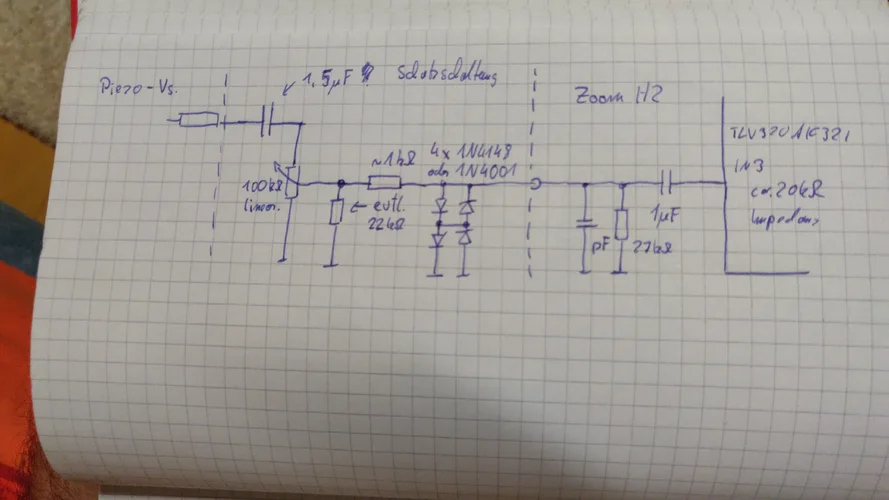 Piezo-Vs.
1,5µF ?
Schutzschaltung
Zoom H2
100kΩ
linear.
← evtl.
22kΩ
~1kΩ
4x 1N4148
oder 1N4001
pF
22kΩ
1µF
TLV320AIC321
IN3
ca. 20kΩ
Impedanz